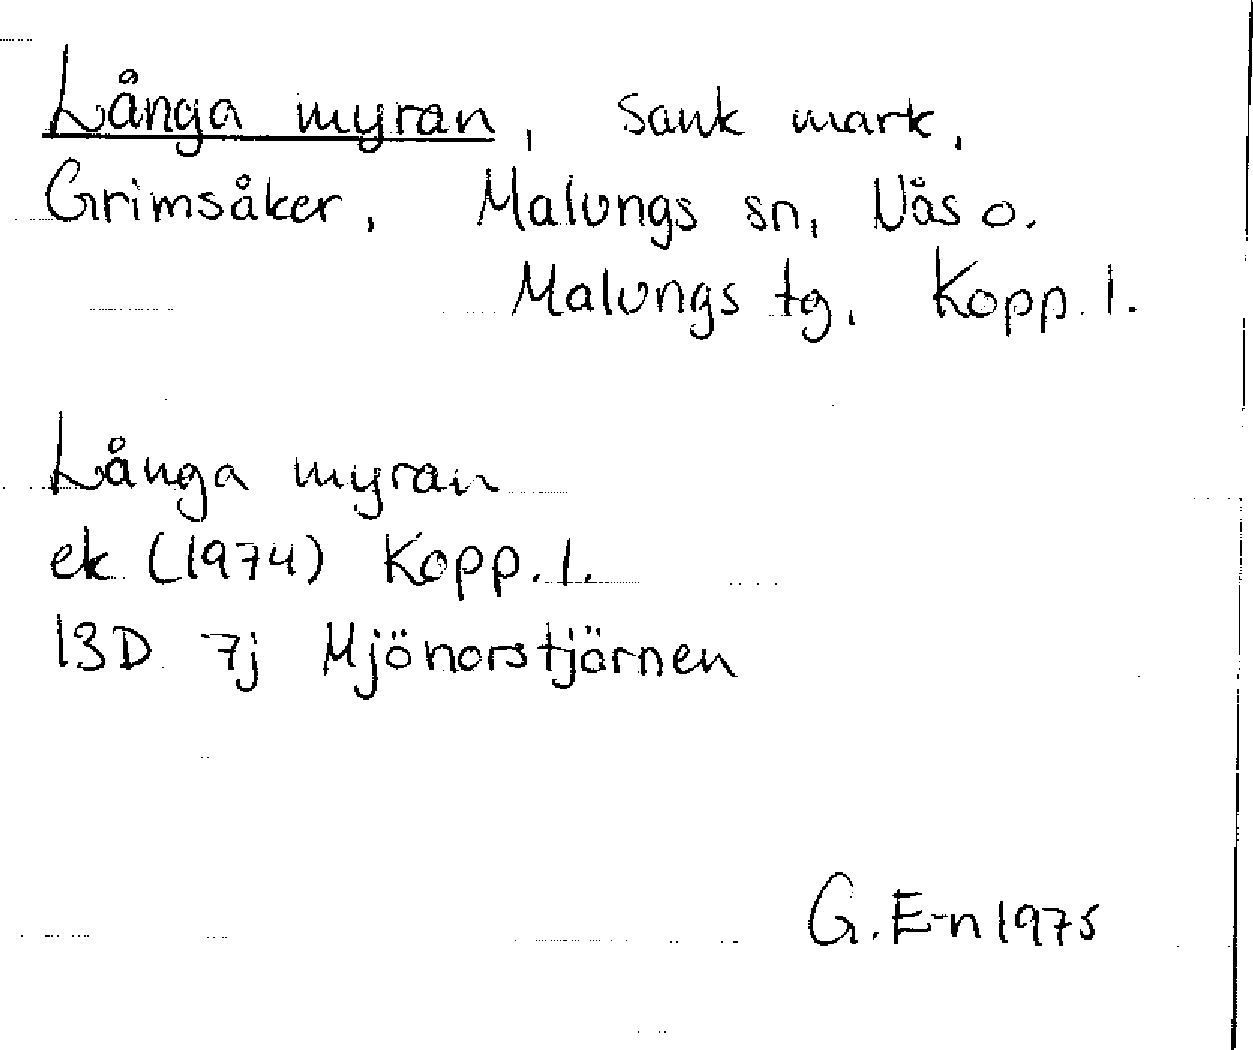 Långa myran, Sank mark,
Grimsåker, Malungs sn, Nås o.
Malungs tg, Kopp. l.
Långa myran
ek (1974) Kopp. l.
13D 7j Mjönorstjärnen
G. E-n 1975